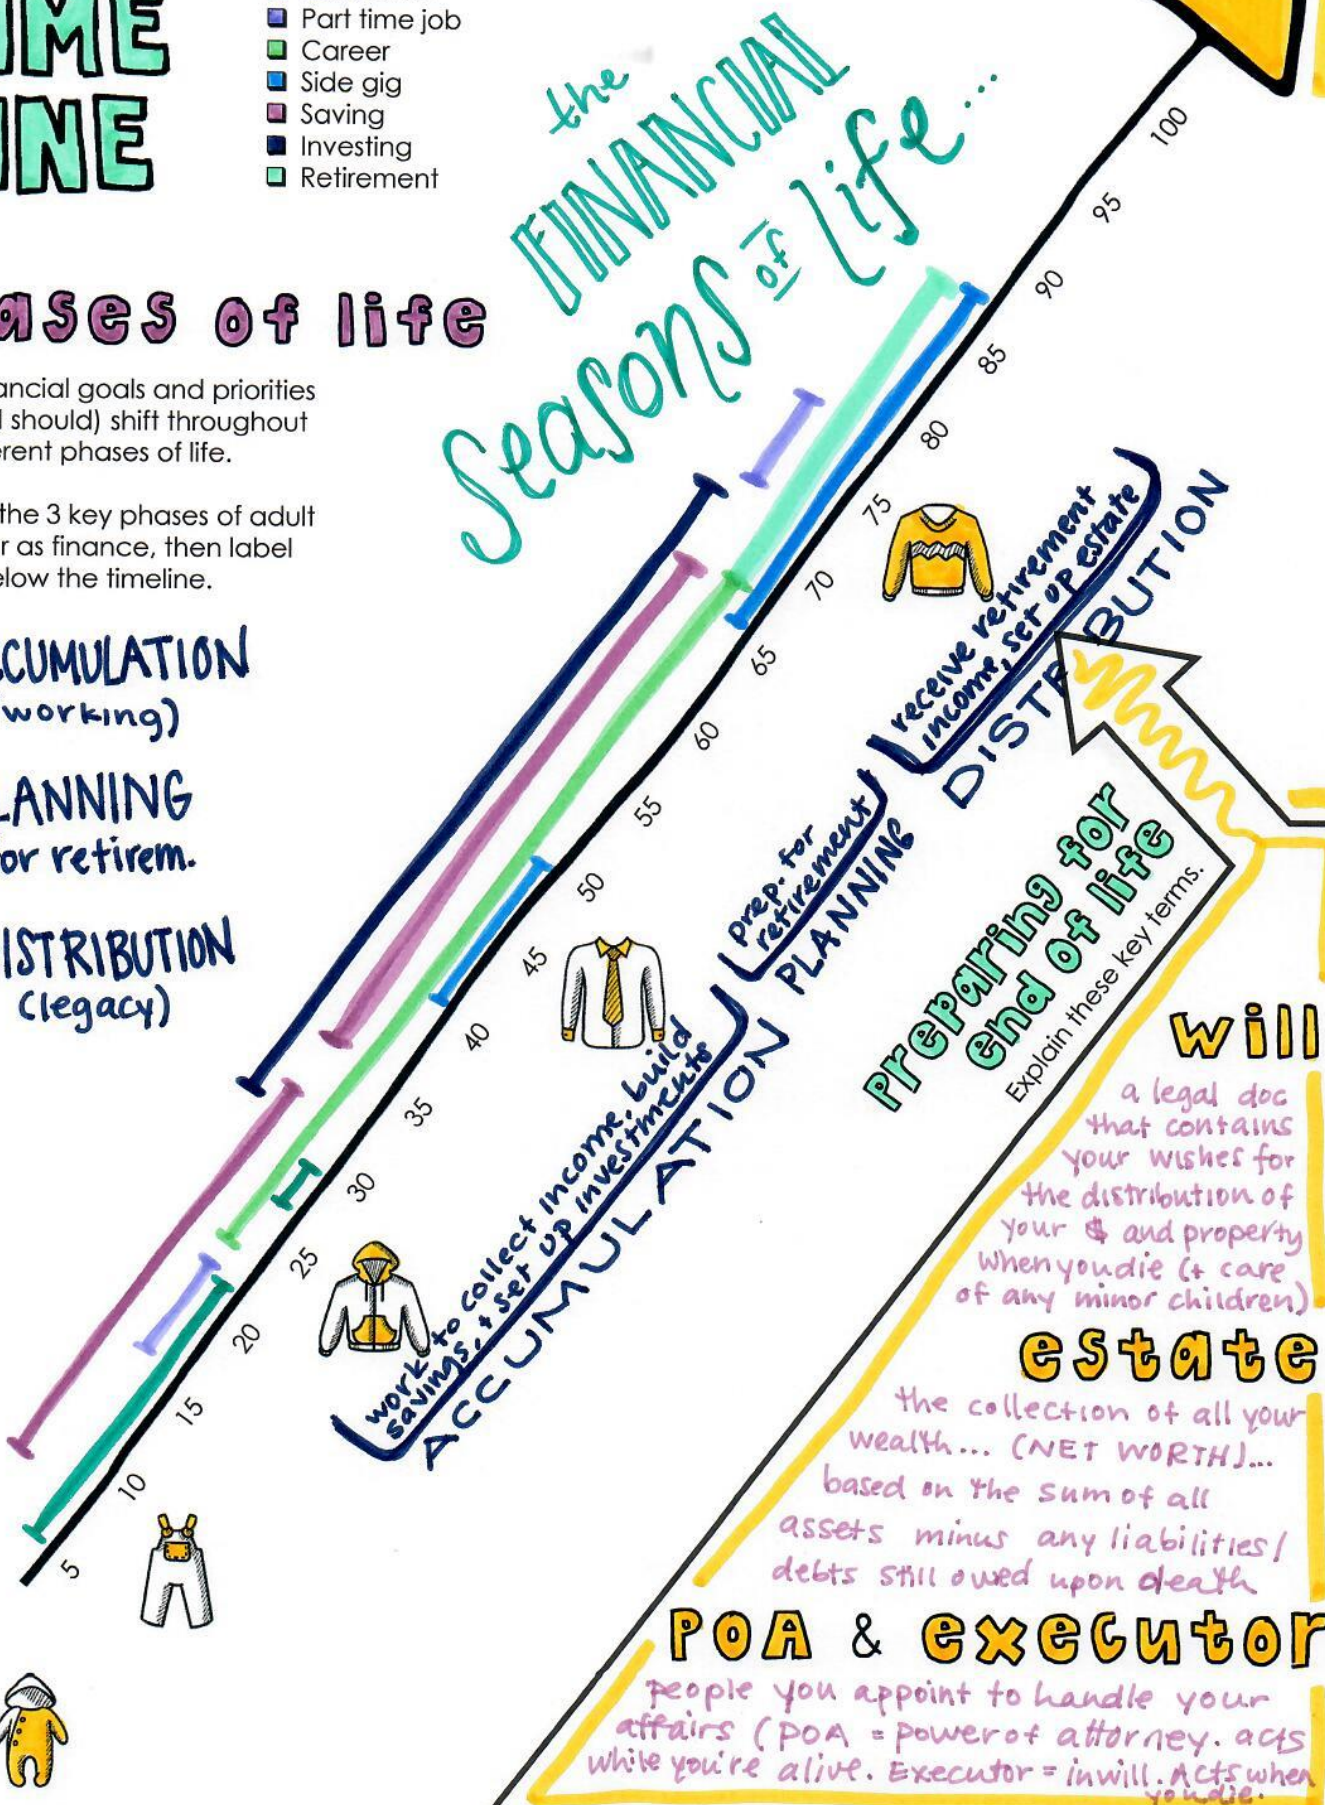 IME
INE
Part time job
Career
Side gig
Saving
Investing
Retirement
the
FINANCIAL
Seasons of Life...
ases of life
ancial goals and priorities
should) shift throughout
rent phases of life.
the 3 key phases of adult
r as finance, then label
elow the timeline.
CCUMULATION
working)
LANNING
or retirem.
ISTRIBUTION
(legacy)
100
95
90
85
80
75
70
65
60
55
50
45
40
35
30
25
20
15
10
5
receive retirement
income, set up estate
DISTRIBUTION
prep. for
retirement
PLANNING
work to collect income, build
savings, + set up investments
ACCUMULATION
Preparing for
end of life
Explain these key terms.
will
a legal doc
that contains
your wishes for
the distribution of
your $ and property
when you die (+ care
of any minor children)
estate
the collection of all your
wealth... (NET WORTH)...
based on the sum of all
assets minus any liabilities/
debts still owed upon death
POA & executor
people you appoint to handle your
affairs (POA = power of attorney. acts
while you're alive. Executor = in will. Acts when
you die.